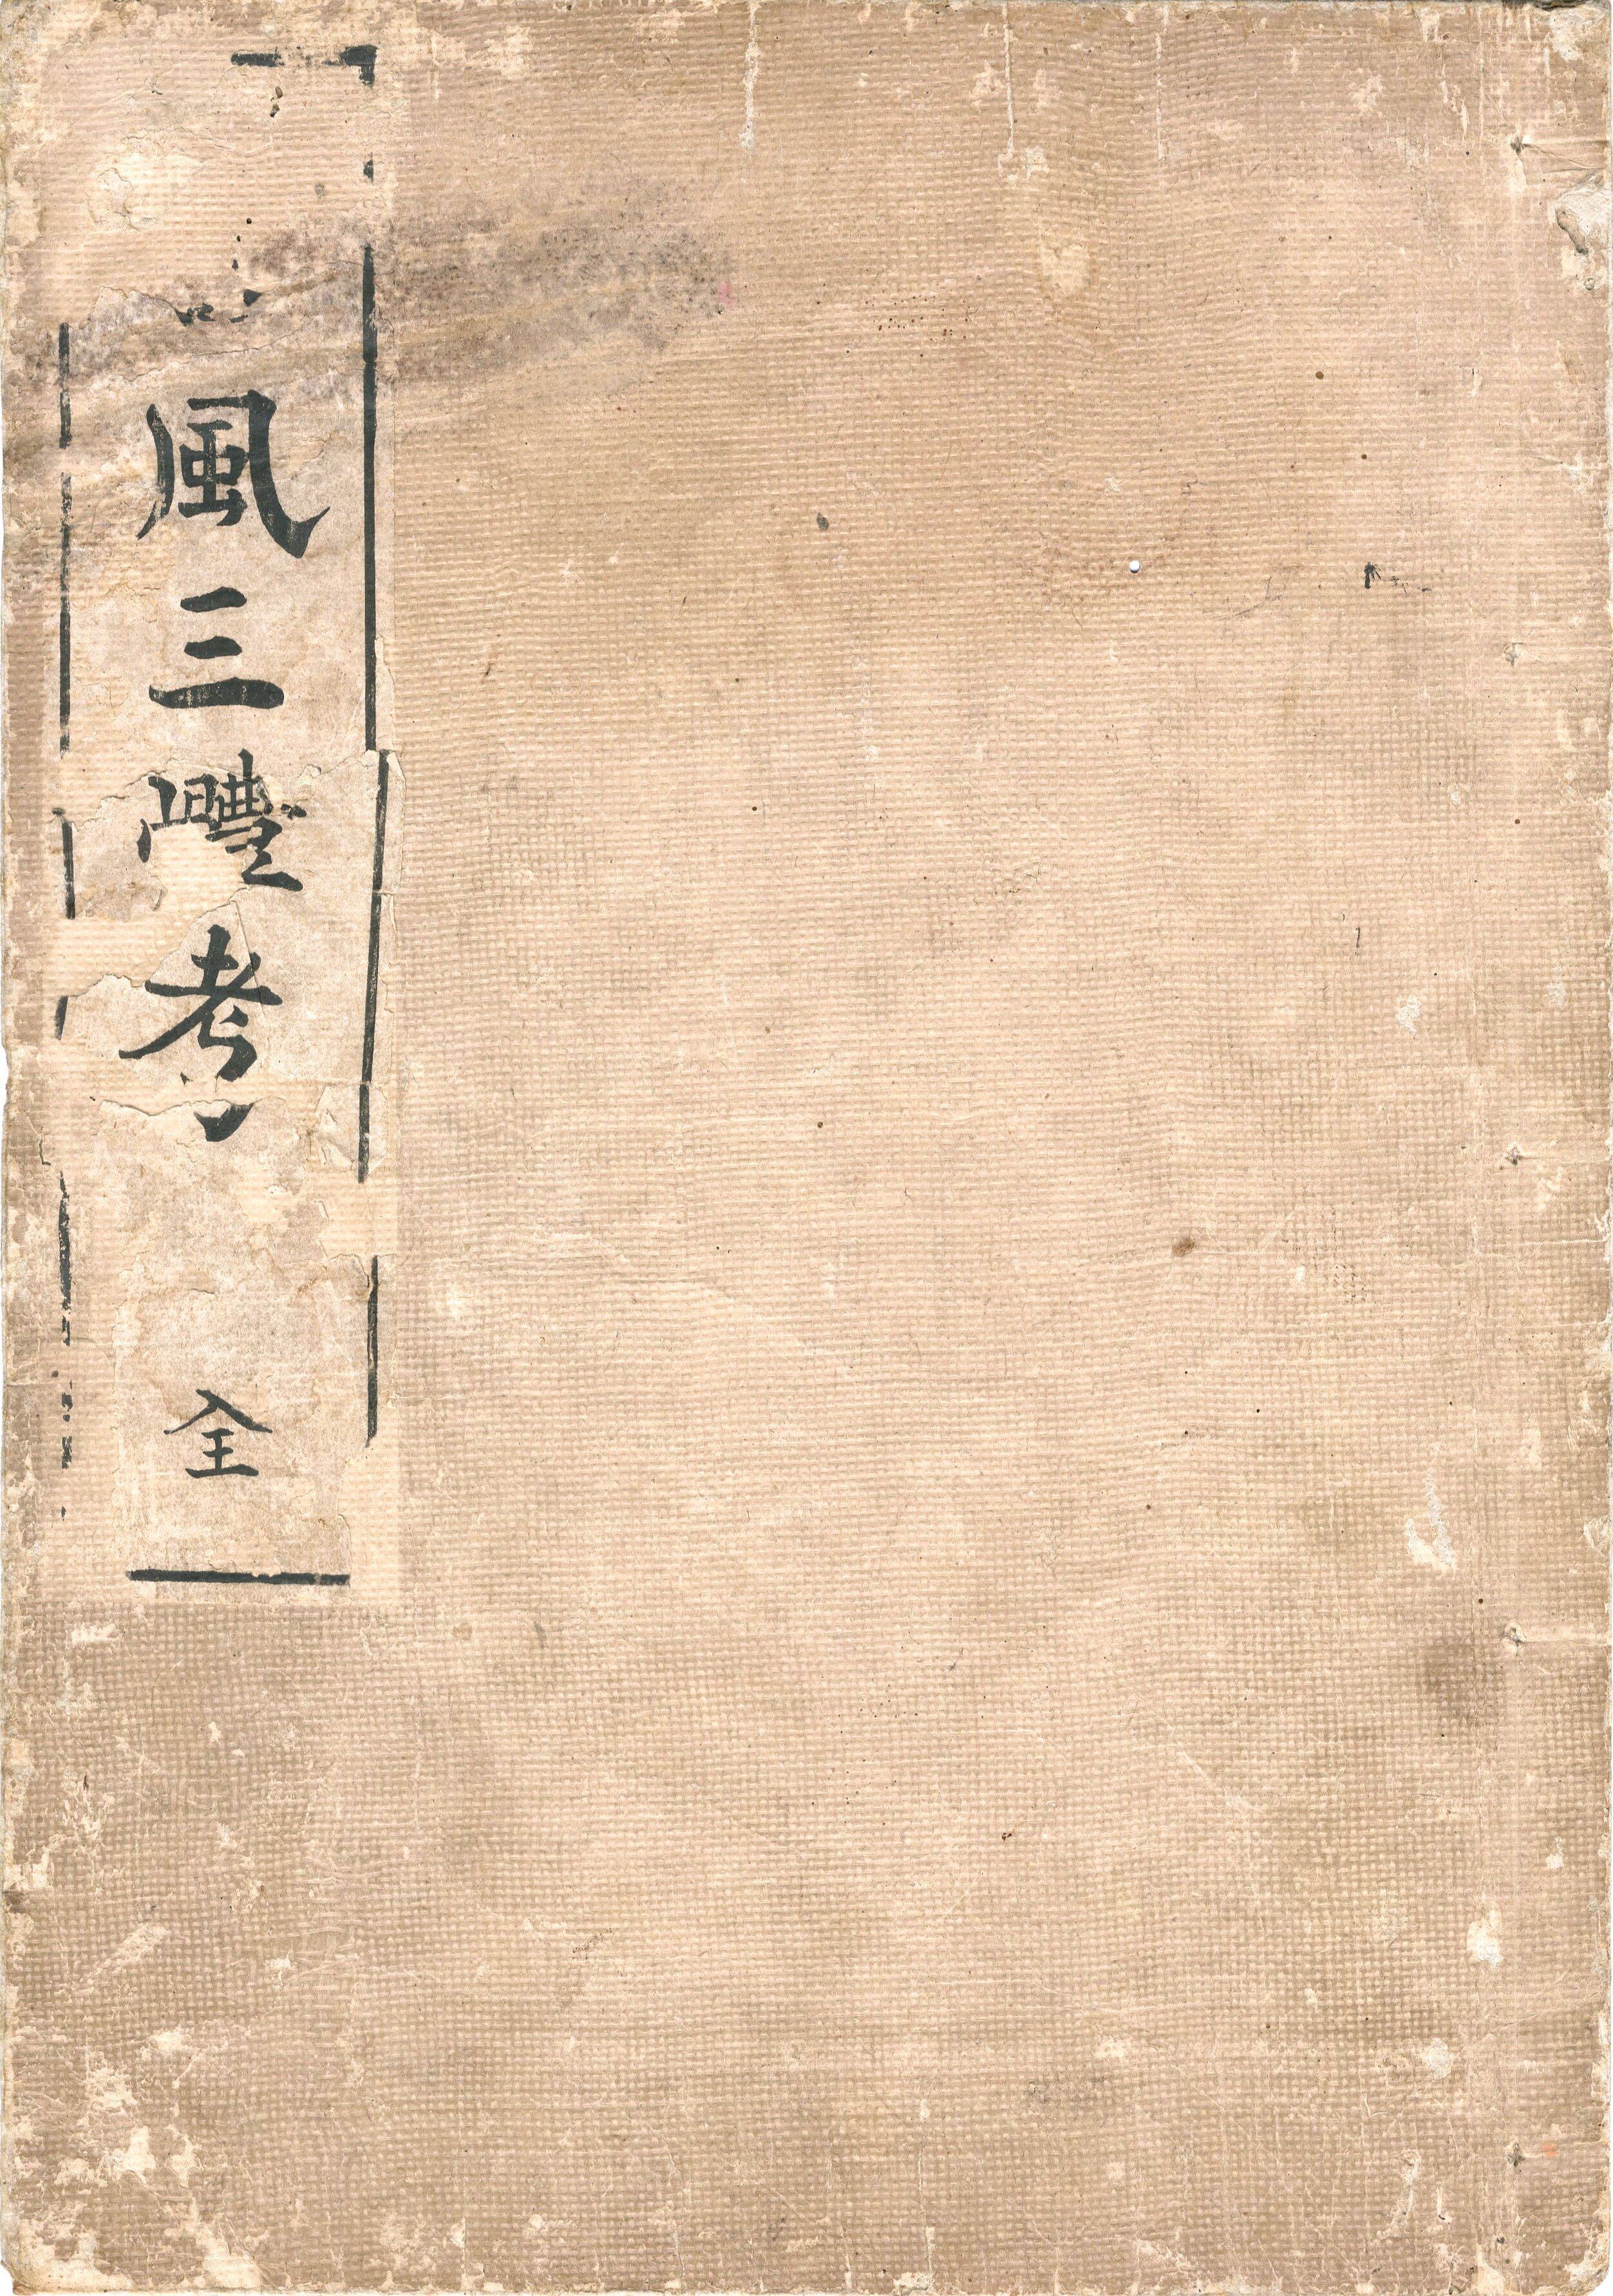 風三體考
全